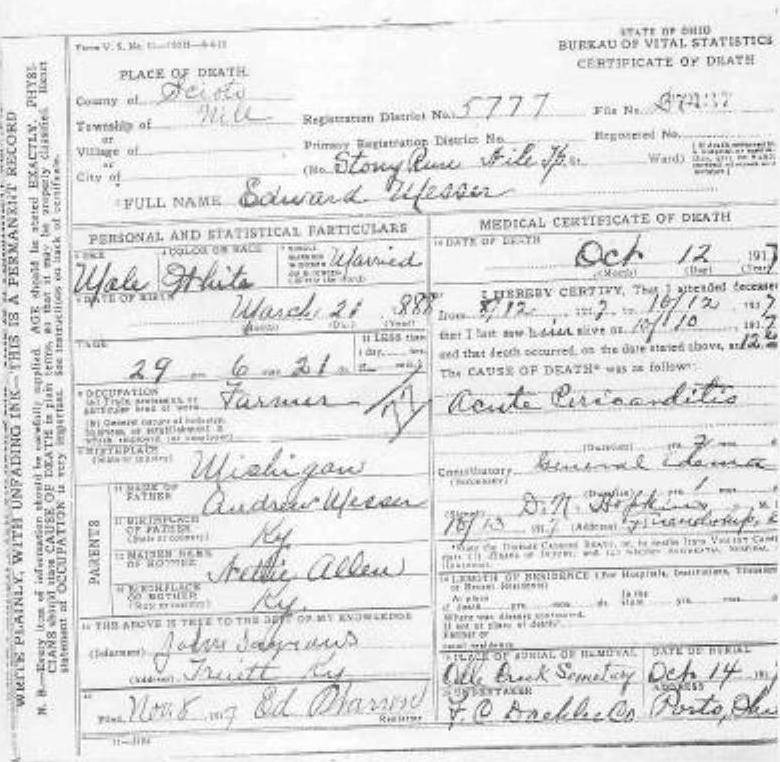 WRITE PLAINLY, WITH UNFADING INK—THIS IS A PERMANENT RECORD
N. B.—Every item of information should be carefully supplied. AGE should be stated EXACTLY. PHYSI-
CIANS should state CAUSE OF DEATH in plain terms, so that it may be properly classified. Exact
statement of OCCUPATION is very important. See instructions on back of certificate.
STATE OF OHIO
BUREAU OF VITAL STATISTICS
CERTIFICATE OF DEATH
PLACE OF DEATH
County of Scioto
Township of Nile
Registration District No. 5777 File No.
or
Village of
Primary Registration District No. Registered No.
or
City of
(No. Stony Run Nile Tp. St. Ward)
FULL NAME Edward Messer
PERSONAL AND STATISTICAL PARTICULARS
SEX Male
COLOR OR RACE White
SINGLE MARRIED WIDOWED OR DIVORCED Married
DATE OF BIRTH March 21 1888
(Month) (Day) (Year)
AGE 29 6 21
If LESS than
1 day,
OCCUPATION
(a) Trade, profession, or
particular kind of work Farmer
(b) General nature of industry,
business, or establishment in
which employed (or employer)
BIRTHPLACE
(State or country) Michigan
PARENTS
NAME OF
FATHER Andrew Messer
BIRTHPLACE
OF FATHER
(State or country) Ky
MAIDEN NAME
OF MOTHER Nettie Allen
BIRTHPLACE
OF MOTHER
(State or country) Ky.
THE ABOVE IS TRUE TO THE BEST OF MY KNOWLEDGE
(Informant) John
(Address) Truett Ky
Filed Nov. 8 1917 Ed
Registrar
MEDICAL CERTIFICATE OF DEATH
DATE OF DEATH
Oct 12 1917
(Month) (Day) (Year)
I HEREBY CERTIFY, That I attended deceased
from 8/12 1917 to 10/12 1917
that I last saw him alive on 10/10 1917
and that death occurred, on the date stated above, at 12
The CAUSE OF DEATH* was as follows:
Acute Pericarditis
(Duration) yrs. 2 mos.
Contributory General edema
(Secondary)
(Duration) yrs. 1 mos.
(Signed) D. N. Hopkins
10/13 1917 (Address) Friendship,
LENGTH OF RESIDENCE (For Hospitals, Institutions, Transients
or Recent Residents)
At place
of death yrs. mos. ds.
In the
state yrs. mos.
Where was disease contracted,
if not at place of death?
Former or
usual residence
PLACE OF BURIAL OR REMOVAL
Creek Semetary
DATE OF BURIAL
Oct. 14 1917
UNDERTAKER
F. C. Co
ADDRESS
Ports, Ohio